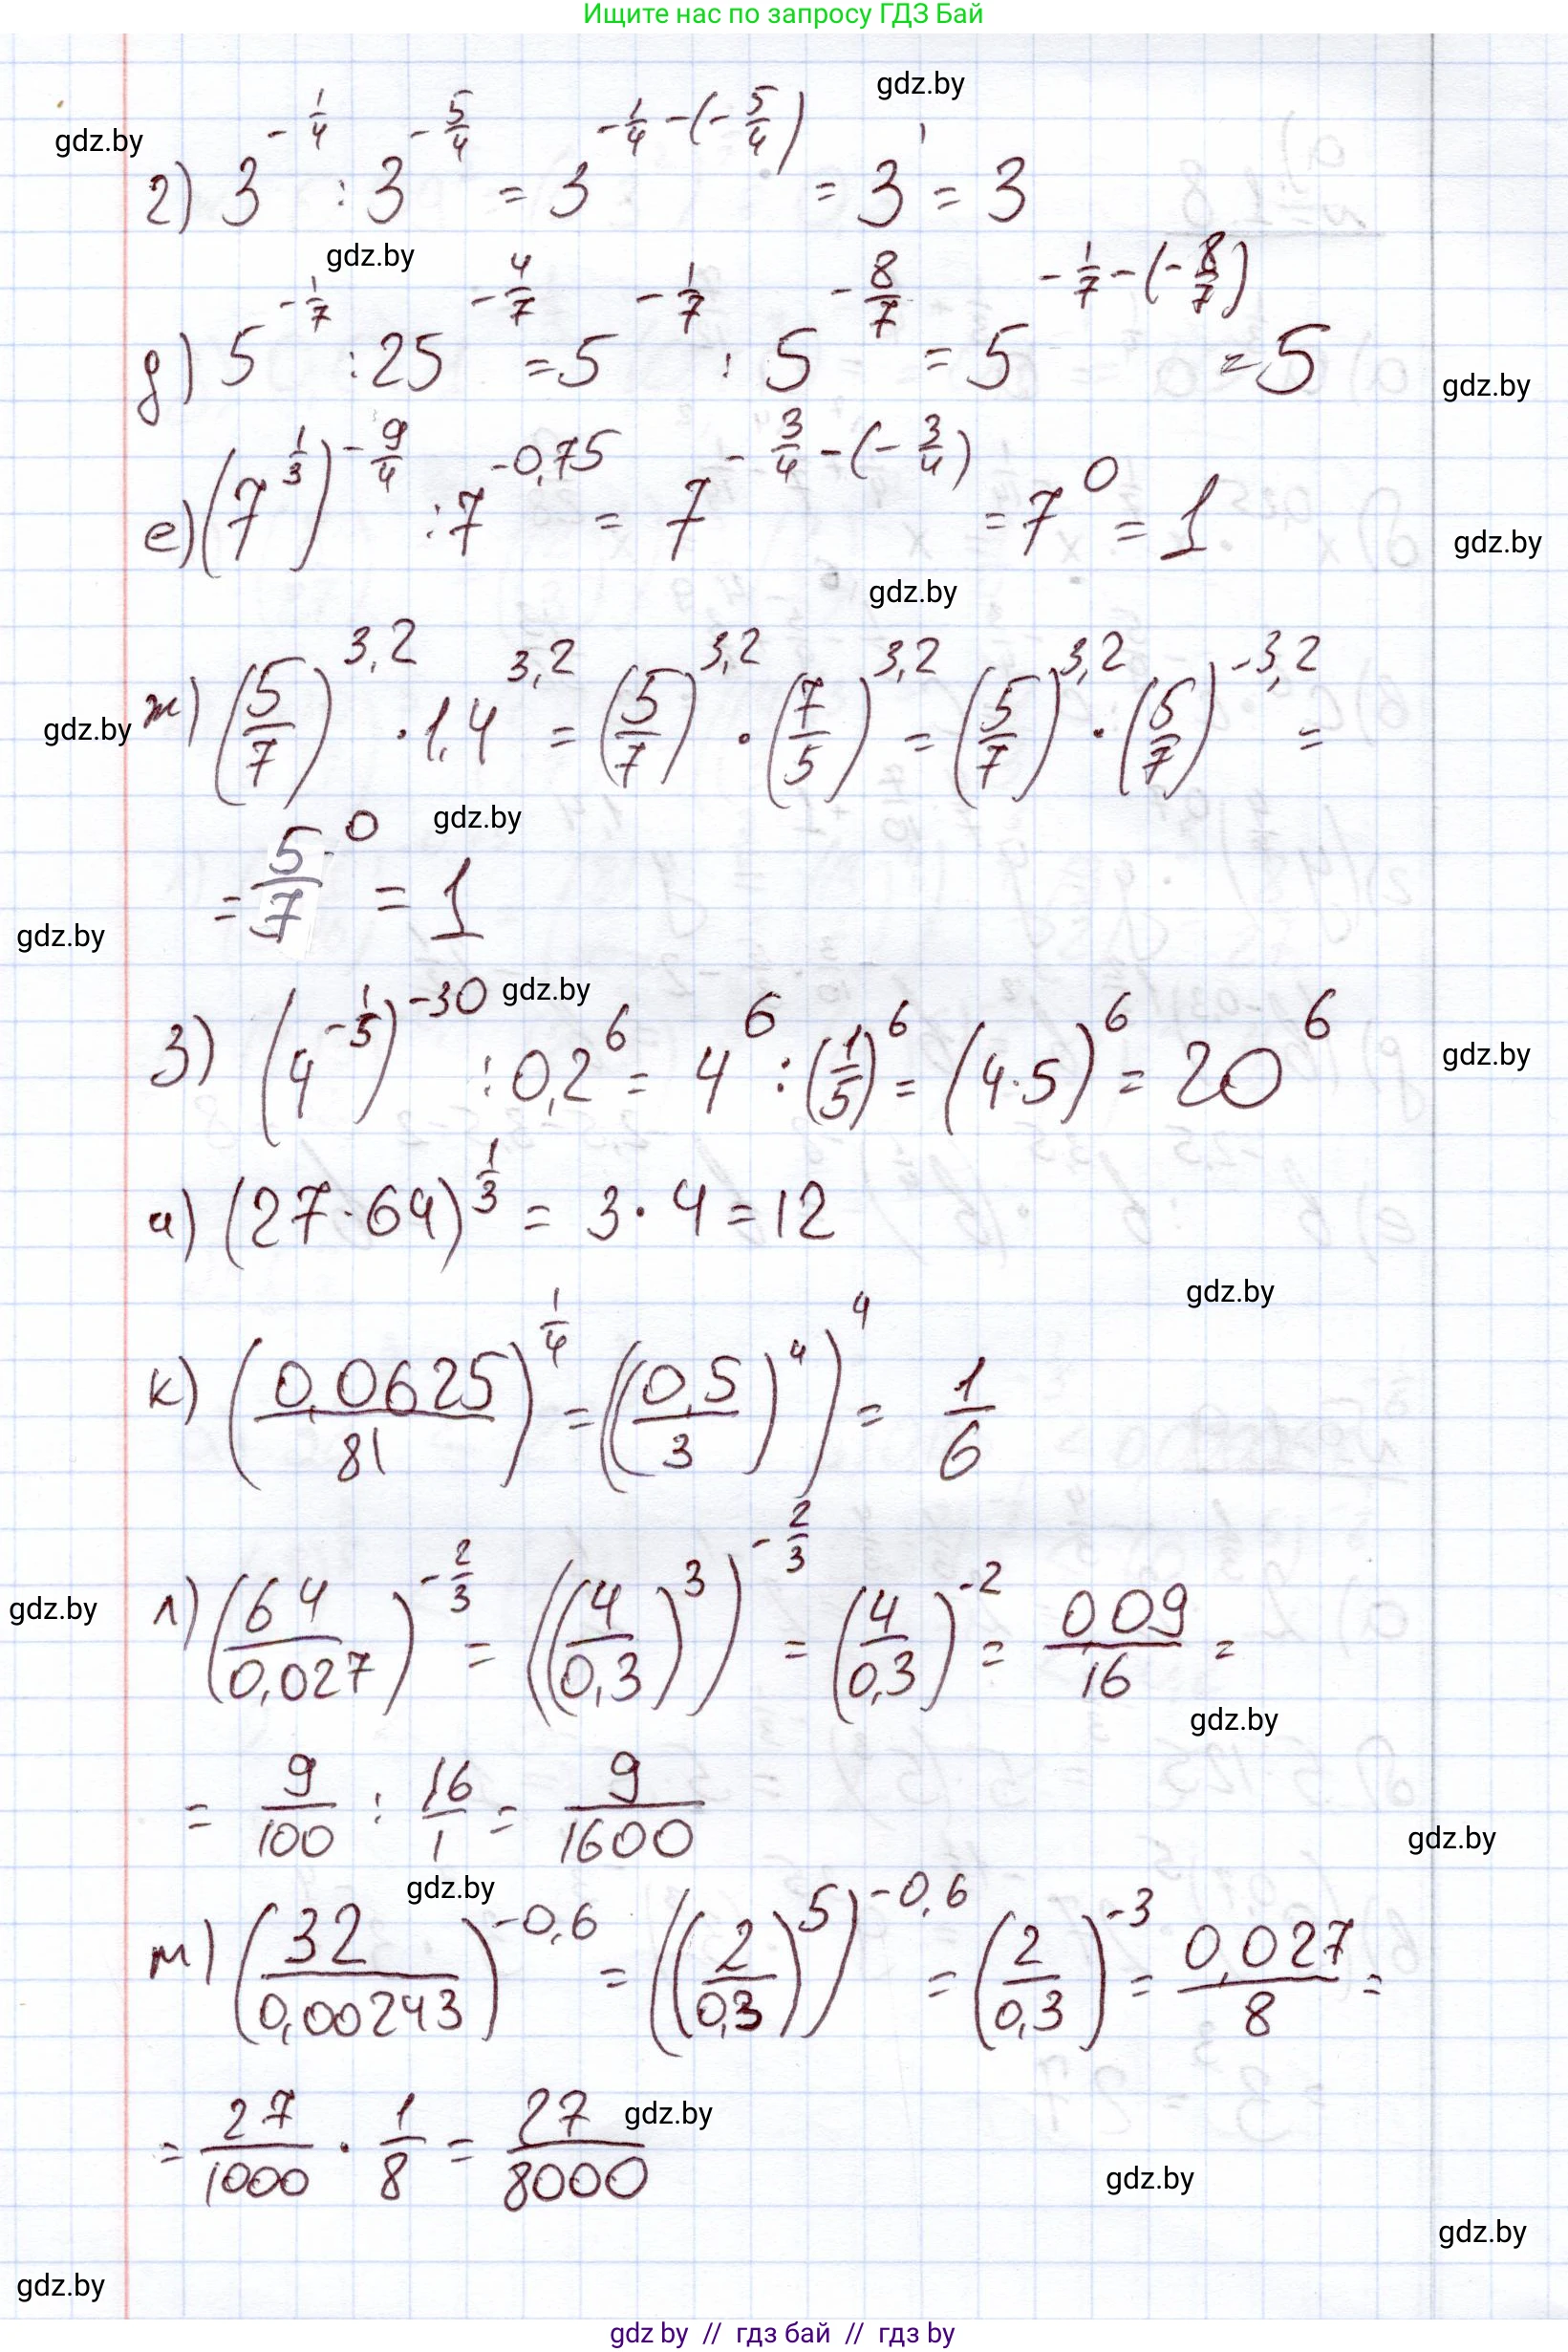 Ищите нас по запросу ГДЗ Бай
gdz.by
gdz.by
г) 3^{-\frac{1}{4}} : 3^{-\frac{5}{4}} = 3^{-\frac{1}{4}-(-\frac{5}{4})} = 3^1 = 3
gdz.by
д) 5^{-\frac{1}{7}} : 25^{-\frac{4}{7}} = 5^{-\frac{1}{7}} : 5^{-\frac{8}{7}} = 5^{-\frac{1}{7}-(-\frac{8}{7})} = 5
gdz.by
е) (7^{\frac{1}{3}})^{-\frac{9}{4}} : 7^{-0,75} = 7^{-\frac{3}{4}-(-\frac{3}{4})} = 7^0 = 1
gdz.by
gdz.by
ж) (\frac{5}{7})^{3,2} · 1,4^{3,2} = (\frac{5}{7})^{3,2} · (\frac{7}{5})^{3,2} = (\frac{5}{7})^{3,2} · (\frac{5}{7})^{-3,2} =
gdz.by
gdz.by
= \frac{5}{7}^0 = 1
gdz.by
gdz.by
з) (4^{-\frac{1}{5}})^{-30} : 0,2^6 = 4^6 : (\frac{1}{5})^6 = (4·5)^6 = 20^6
gdz.by
и) (27·64)^{\frac{1}{3}} = 3·4 = 12
gdz.by
к) (\frac{0,0625}{81})^{\frac{1}{4}} = ((\frac{0,5}{3})^4)^4 = \frac{1}{6}
gdz.by
л) (\frac{64}{0,027})^{-\frac{2}{3}} = ((\frac{4}{0,3})^3)^{-\frac{2}{3}} = (\frac{4}{0,3})^{-2} = \frac{0,09}{16} =
gdz.by
= \frac{9}{100} : \frac{16}{1} = \frac{9}{1600}
gdz.by
gdz.by
м) (\frac{32}{0,00243})^{-0,6} = ((\frac{2}{0,3})^5)^{-0,6} = (\frac{2}{0,3})^{-3} = \frac{0,027}{8} =
= \frac{27}{1000} · \frac{1}{8} = \frac{27}{8000}
gdz.by
gdz.by
gdz.by
gdz.by
gdz by // гдз бай // гдз by